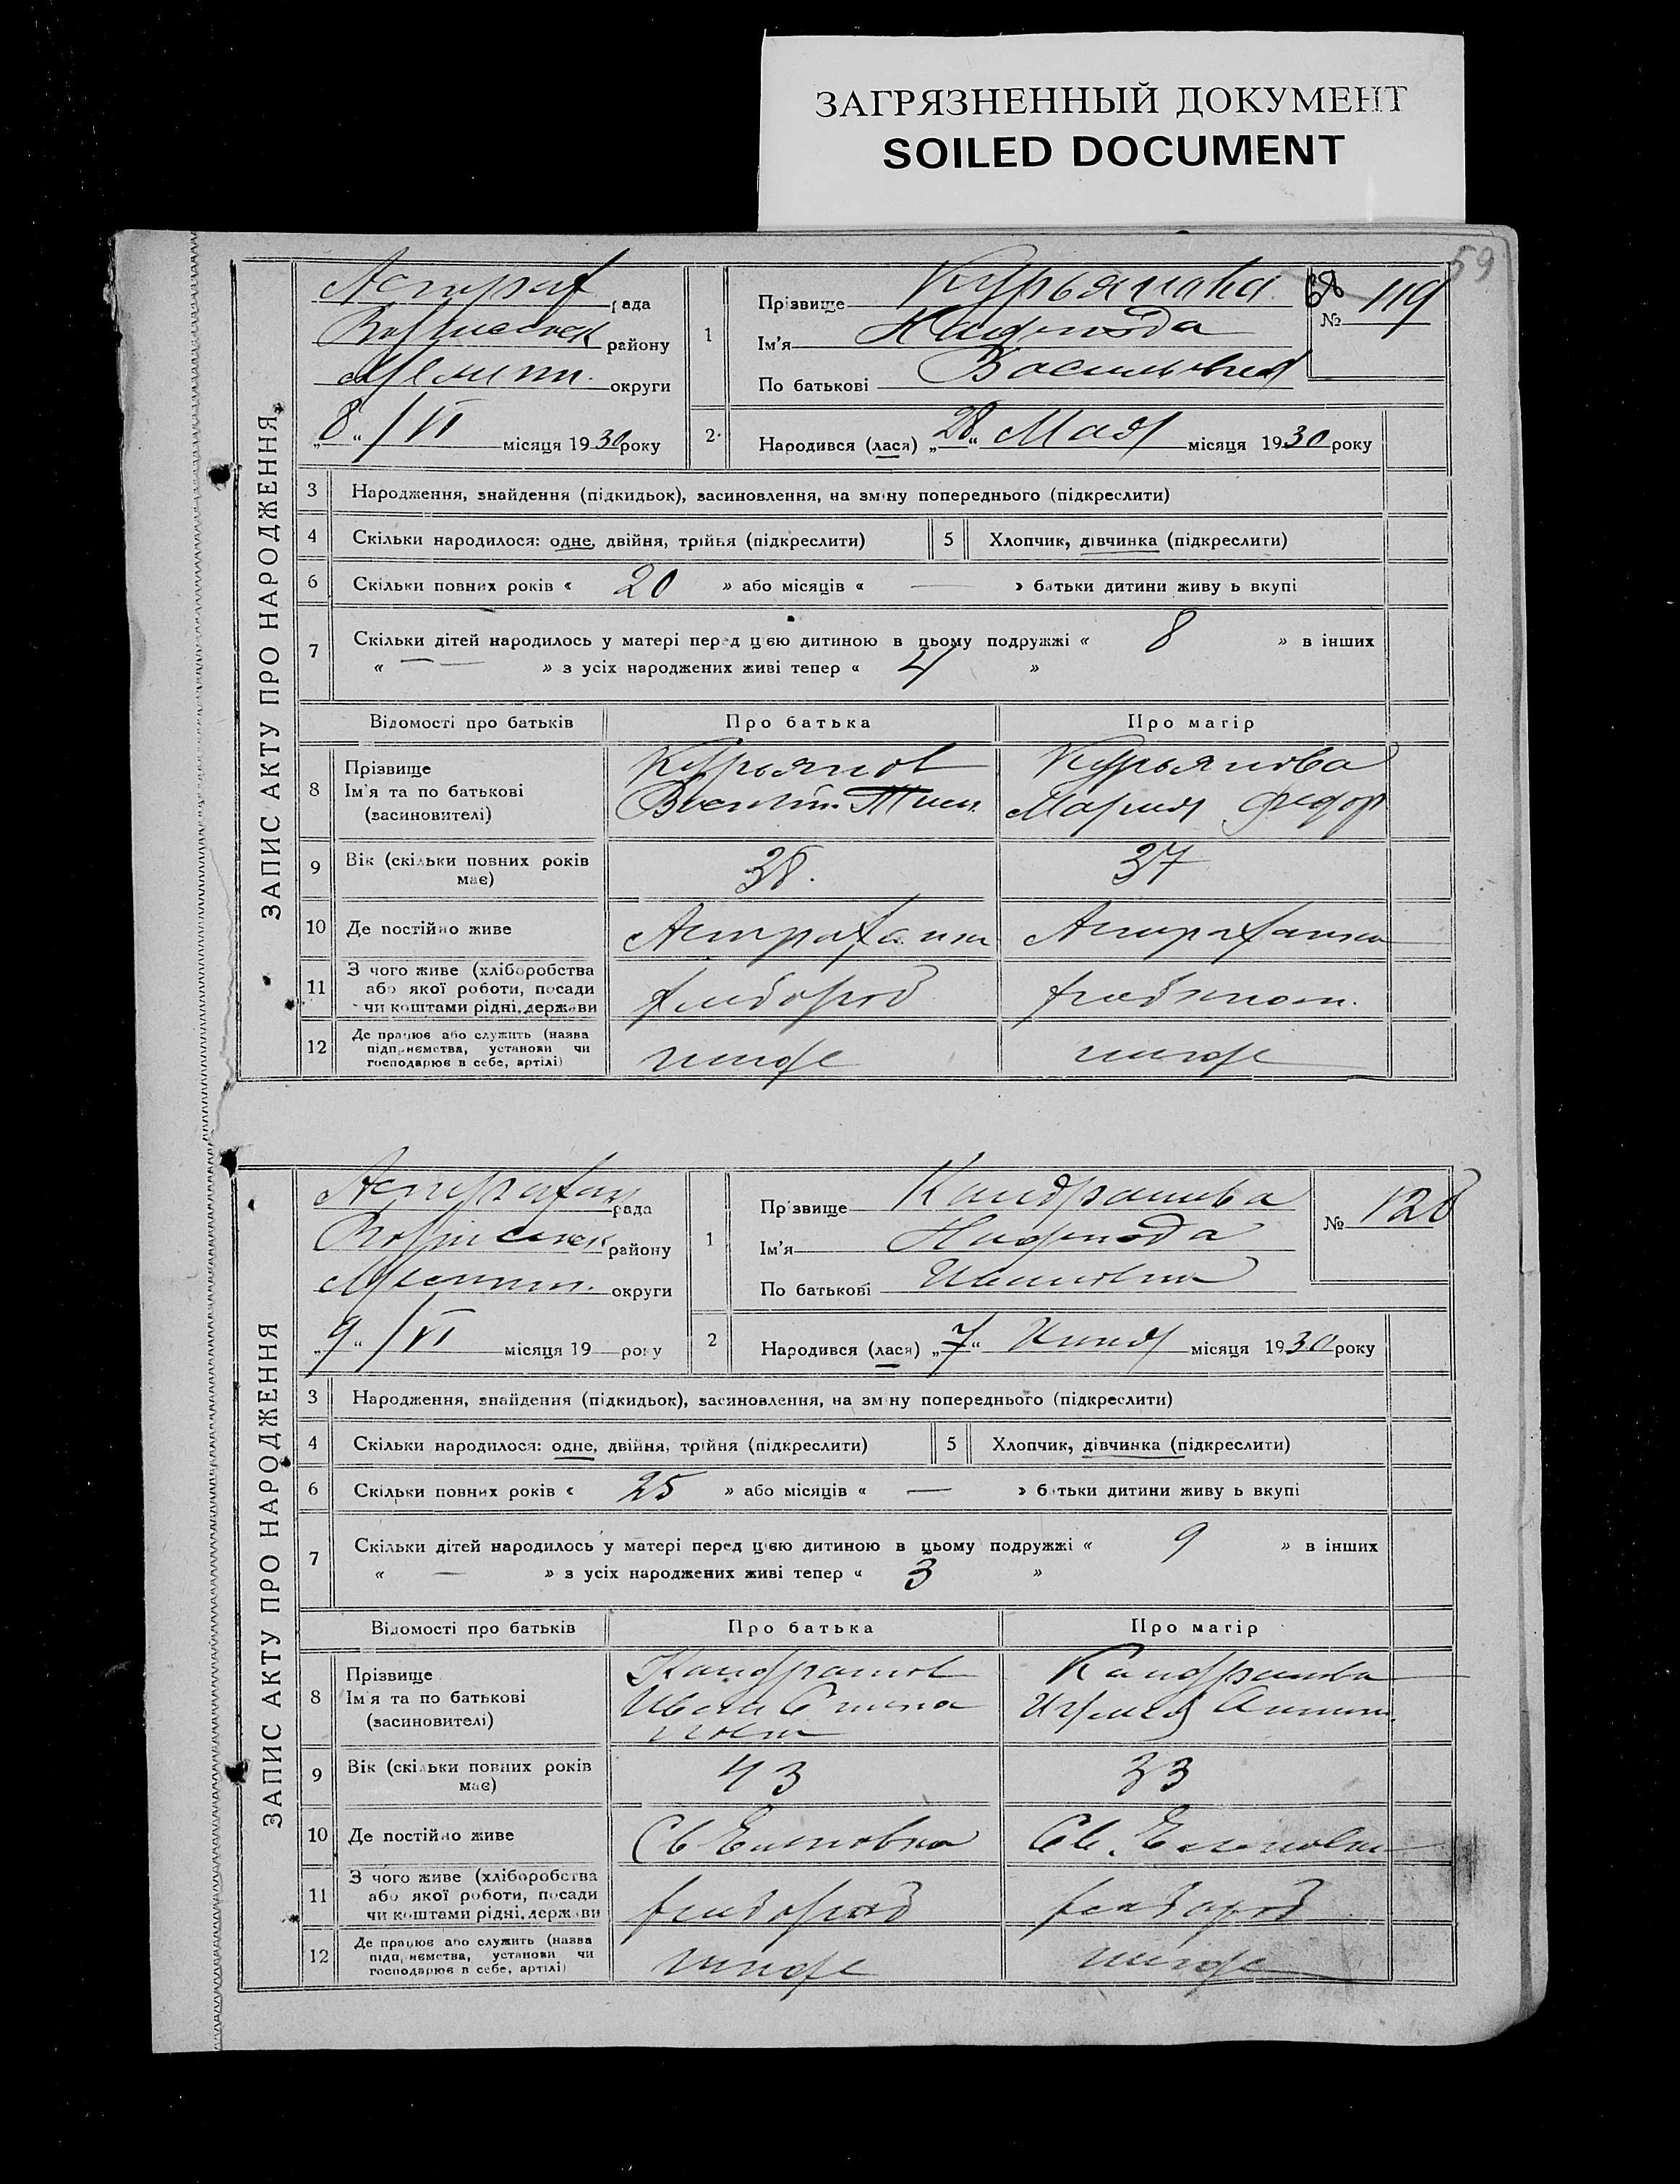 ЗАГРЯЗНЕННЫЙ ДОКУМЕНТ
SOILED DOCUMENT
59
ЗАПИС АКТУ ПРО НАРОДЖЕННЯ
Астрах рада
району
Мелит. округи
„8“ /VI місяця 1930 року
1
Прізвище Курьянова
Ім'я Надежда
По батькові Васильевна
№ 119
2.
Народився (лася) „28“ Мая місяця 1930 року
3 Народження, знайдення (підкидьок), засиновлення, на зміну попереднього (підкреслити)
4 Скільки народилося: одне, двійня, трійня (підкреслити)
5 Хлопчик, дівчинка (підкреслити)
6 Скільки повних років « 20 » або місяців « — » батьки дитини живуть вкупі
7 Скільки дітей народилось у матері перед цією дитиною в цьому подружжі « 8 » в інших
« — — » з усіх народжених живі тепер « 4 »
Відомості про батьків Про батька Про матір
8 Прізвище Курьянов Курьянова
Ім'я та по батькові Мария Федор
(засиновителі)
9 Вік (скільки повних років має) 38. 37
10 Де постійно живе Астраханка Астраханка
11 З чого живе (хліборобства
або якої роботи, посади
чи коштами рідні, держави
хлебороб
12 Де працює або служить (назва
підприємства, установи чи
господарює в себе, артілі)
ЗАПИС АКТУ ПРО НАРОДЖЕННЯ
Астрахан рада
району
Мелитп. округи
„9“ /VI місяця 19 року
1
Прізвище Кандрашова
Ім'я Надежда
По батькові Ивановна
№ 120
2
Народився (лася) „7“ Июня місяця 1930 року
3 Народження, знайдення (підкидьок), засиновлення, на зміну попереднього (підкреслити)
4 Скільки народилося: одне, двійня, трійня (підкреслити)
5 Хлопчик, дівчинка (підкреслити)
6 Скільки повних років « 25 » або місяців « — » батьки дитини живуть вкупі
7 Скільки дітей народилось у матері перед цією дитиною в цьому подружжі « 9 » в інших
« — » з усіх народжених живі тепер « 3 »
Відомості про батьків Про батька Про матір
8 Прізвище Кандрашов Кандрашова
Ім'я та по батькові Иван
(засиновителі)
9 Вік (скільки повних років має) 43 33
10 Де постійно живе
11 З чого живе (хліборобства
або якої роботи, посади
чи коштами рідні, держави
хлебороб хлебороб
12 Де працює або служить (назва
підприємства, установи чи
господарює в себе, артілі)